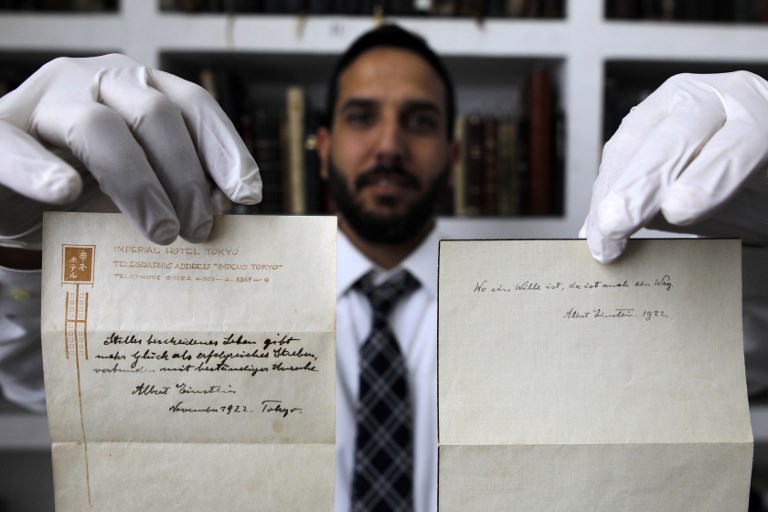 帝国ホテル
IMPERIAL HOTEL TOKYO
TELEGRAPHIC ADDRESS "IMPEHO TOKYO"
Stilles bescheidenes Leben gibt
mehr Glück als erfolgreiches Streben,
verbunden mit beständiger Unruhe
Albert Einstein
November 1922. Tokyo.
Wo ein Wille ist, da ist auch ein Weg.
Albert Einstein. 1922.